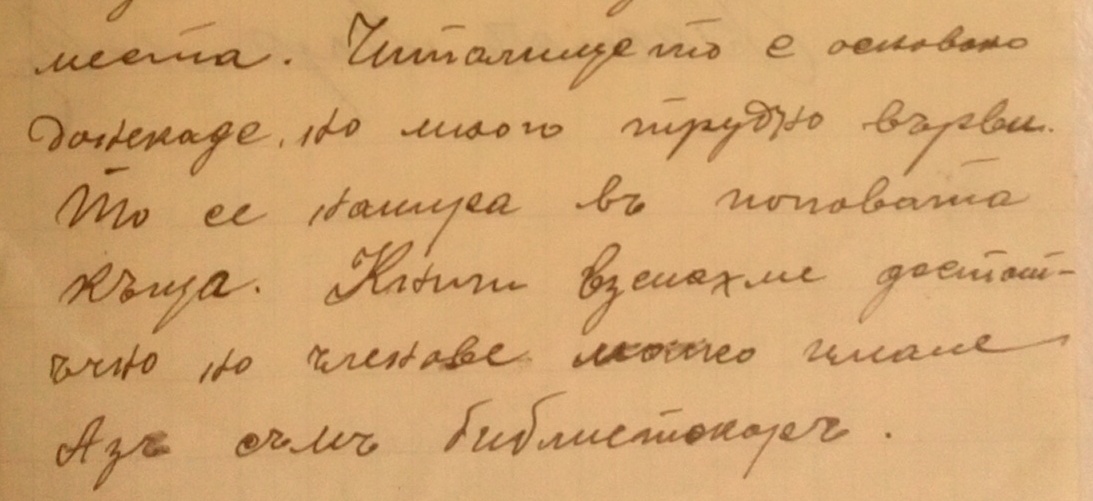 места. Читалището е основано
донекаде, но много трудно върви.
То се намира въ поповата
къща. Книги взехме достат-
ъчно но членове малко имаме
Азъ съмъ библиотекаръ.